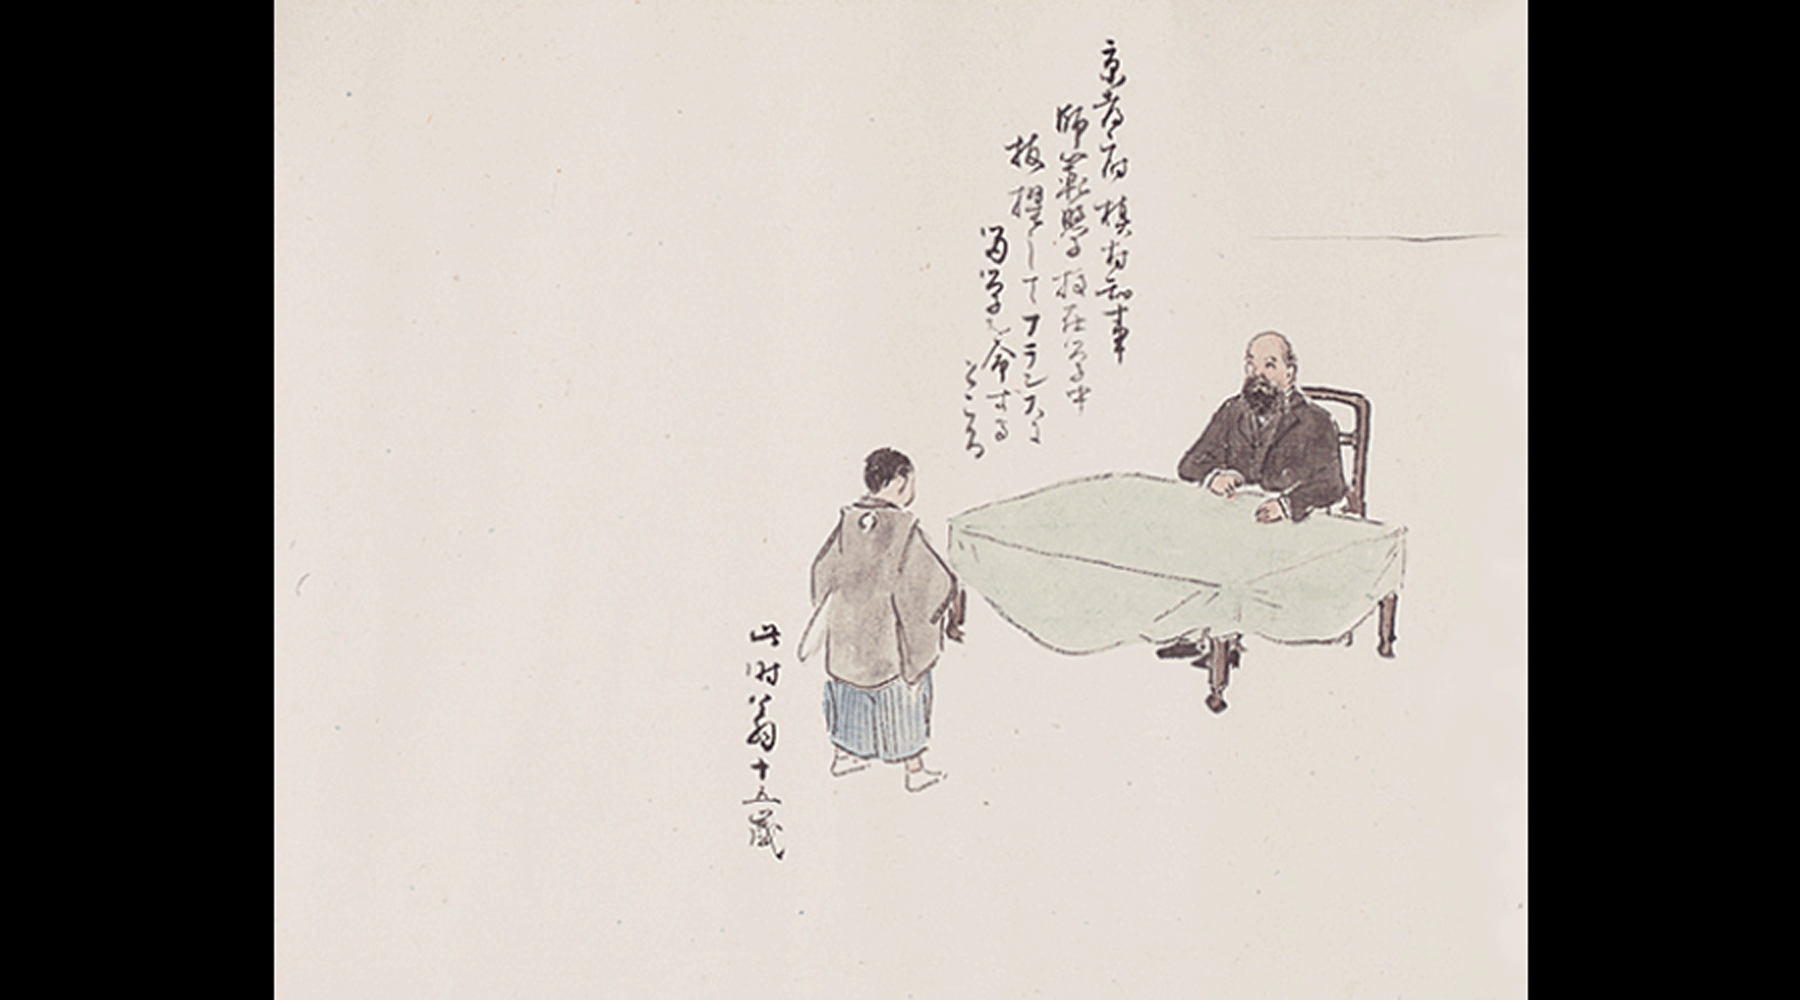 京都府槙村知事
師範学校在学中
抜擢してフランスに
留学を命ずる
ところ
此時翁十五歳